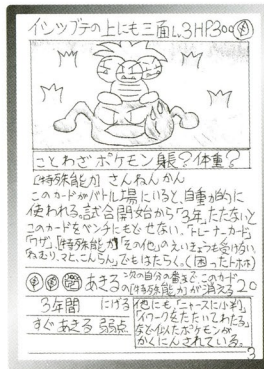 イシツブテの上にも三面 Lv.3 HP300
ことわざポケモン 身長? 体重?
[特殊能力] さんねんかん
このカードがバトル場にいると、自動的に
使われる。試合開始から「3年」たたないと
このカードをベンチにもどせない。「トレーナーカード」
「ワザ」、「特殊能力」「その他」のえいきょうを受けない。
「ねむり、マヒ、こんらん」でもはたらく。(困ったトホホ)
あきる 次の自分の番まで、このカード
の[特殊能力]が消える 20
3年間 にげる
すぐあきる 弱点
他にも「ニャースに小判」
「イワークをたたいてわたる」
など似たポケモンが
かくにんされている。
3